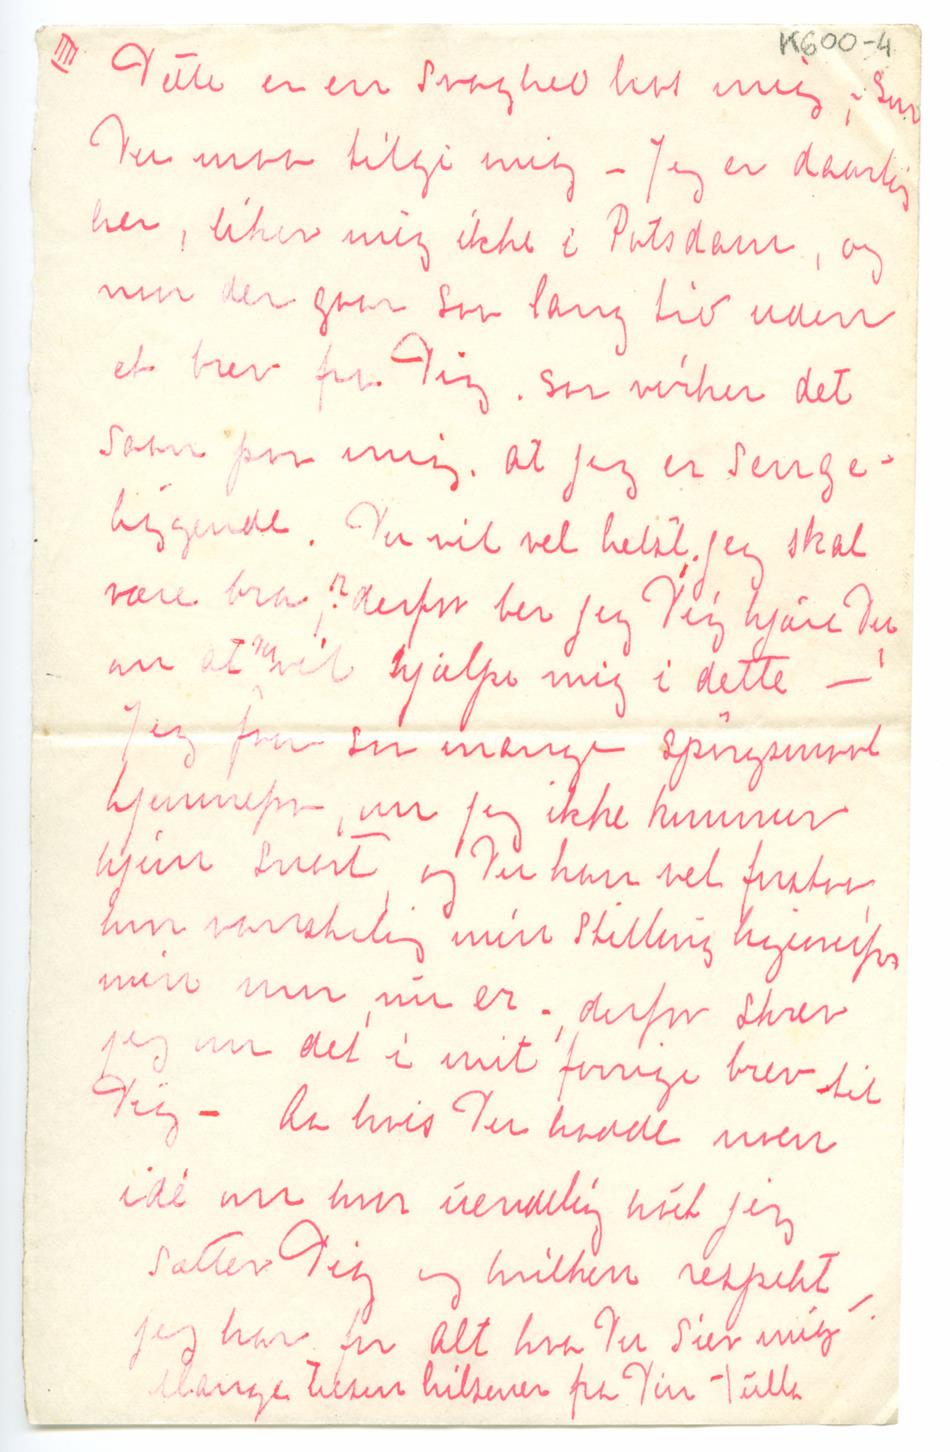 IIII
K600-4
Dette er en svaghed hos mig, som
Du maa tilgi mig – Jeg er daarlig
her, liker mig ikke i Potsdam, og
naar der gaar saa lang tid uden
et brev fra Dig. saa virker det
saan paa mig. at jeg er senge-
liggende. Du vil vel helst, jeg skal
være bra,? derfor ber jeg Dig kjære Du
om at vil hjælpe mig i dette –!
Jeg faar saa mange spørgsmaal
hjemmefra, om jeg ikke kommer
hjem snart, og Du kan vel forstaa,
hvor vanskelig min Stilling hjemmefra
min nu er -, derfor skrev
jeg om det i mit forrige brev til
Dig – Aa hvis Du hadde noen
idé om hvor uendelig høit jeg
sætter Dig og hvilken respekt
jeg har for alt hva Du sier mig –
Mange tusen hilsener fra Din Tulla